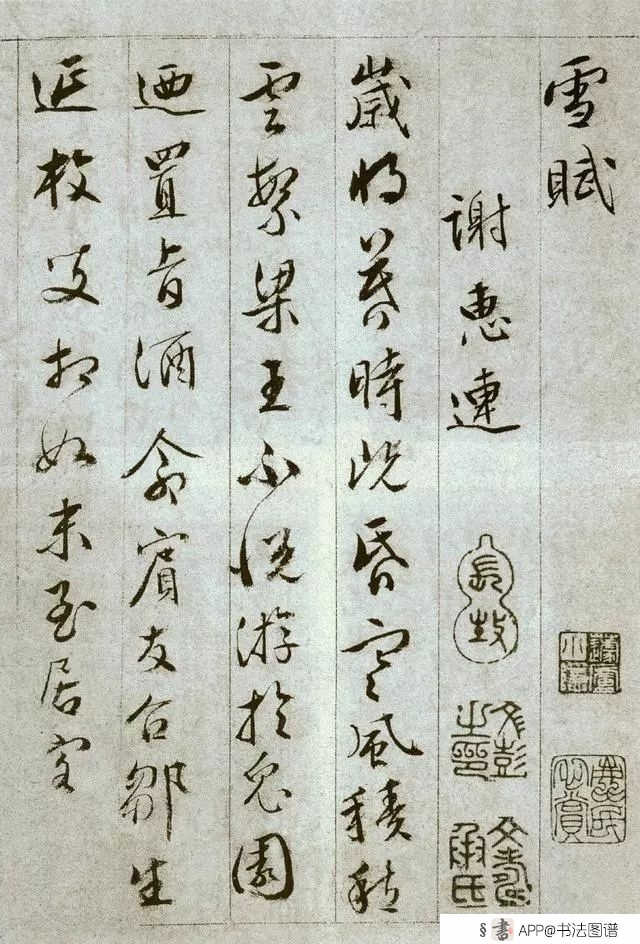 雪賦
謝惠連
歲將暮時既昏寒風積愁
雲繁梁王不悅游於兔園
迺置旨酒命賓友召鄒生
延枚叟相如末至居客
文彭之印
文壽承氏
§書 APP@书法图谱